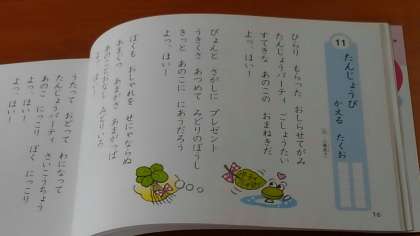 11
たんじょうび
かえる たくお
ひらり もらった おしらせてがみ
たんじょうパーティ ごしょうたい
すてきな あのこの おまねきだ
よっ、ほい！
ぴょんと さがしに プレゼント
うきくさ あつめて みどりのぼうし
きっと あのこに にあうだろう
よっ、ほい！
ぼくも おしゃれを せにゃならぬ
よっ、ほい！
うたって おどって わになって
たんじょうパーティ さいこうちょう
あのこ にっこり ぼく にっこり
よっ、ほい！
16